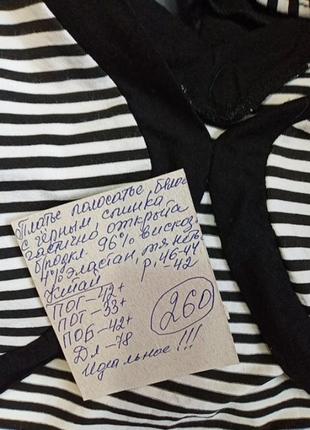 Платье полосатое бело
с чёрным, спинка
частично открыта
96% вискоз.
4% эластан, тянет.
Китай р. 46-44
-42
ПОГ-42+
ПОТ-33+
ПОБ-42+
Дл-78
Идеальное!!!
260